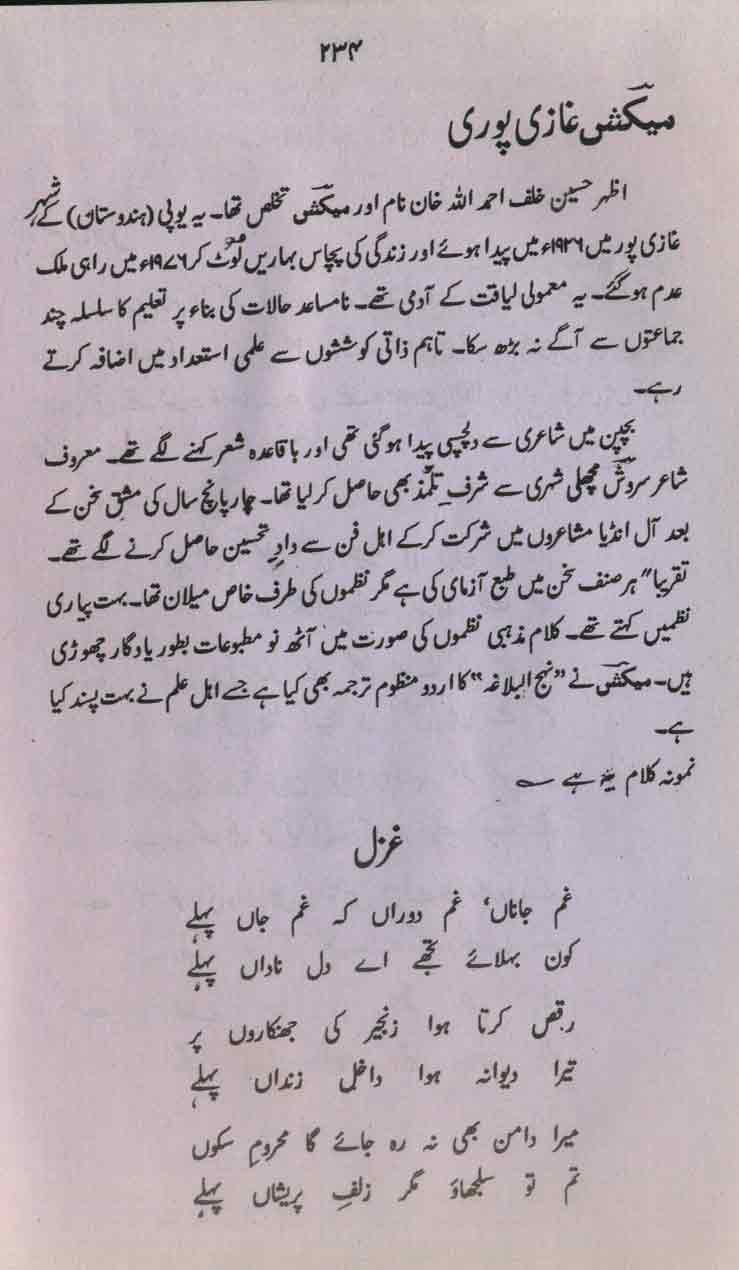 ۲۳۴
میکشؔ غازی پوری
اظہر حسین خلف احمد اللہ خان نام اور میکشؔ تخلص تھا۔ یہ یوپی (ہندوستان) کے شہر
غازی پور میں ۱۹۲۶ء میں پیدا ہوئے اور زندگی کی پچاس بہاریں لوٹ کر ۱۹۷۶ء میں راہی ملک
عدم ہوگئے۔ یہ معمولی لیاقت کے آدمی تھے۔ نامساعد حالات کی بناء پر تعلیم کا سلسلہ چند
جماعتوں سے آگے نہ بڑھ سکا۔ تاہم ذاتی کوششوں سے علمی استعداد میں اضافہ کرتے
رہے۔
بچپن میں شاعری سے دلچسپی پیدا ہوگئی تھی اور باقاعدہ شعر کہنے لگے تھے۔ معروف
شاعر سروشؔ مچھلی شہری سے شرفِ تلمّذ بھی حاصل کرلیا تھا۔ چار پانچ سال کی مشق سخن کے
بعد آل انڈیا مشاعروں میں شرکت کرکے اہل فن سے دادِ تحسین حاصل کرنے لگے تھے۔
تقریبا" ہر صنف سخن میں طبع آزمای کی ہے مگر نظموں کی طرف خاص میلان تھا۔ بہت پیاری
نظمیں کہتے تھے۔ کلام مذہبی نظموں کی صورت میں آٹھ نو مطبوعات بطور یادگار چھوڑی
ہیں۔ میکشؔ نے "نہج البلاغہ" کا اردو منظوم ترجمہ بھی کیا ہے جسے اہل علم نے بہت پسند کیا
ہے۔
نمونہ کلام یہ ہے ؎
غزل
غم جاناں' غم دوراں کہ غم جاں پہلے
کون بہلائے تجھے اے دل ناداں پہلے
رقص کرتا ہوا زنجیر کی جھنکاروں پر
تیرا دیوانہ ہوا داخلِ زنداں پہلے
میرا دامن بھی نہ رہ جائے گا محرومِ سکوں
تم تو سلجھاؤ مگر زلفِ پریشاں پہلے